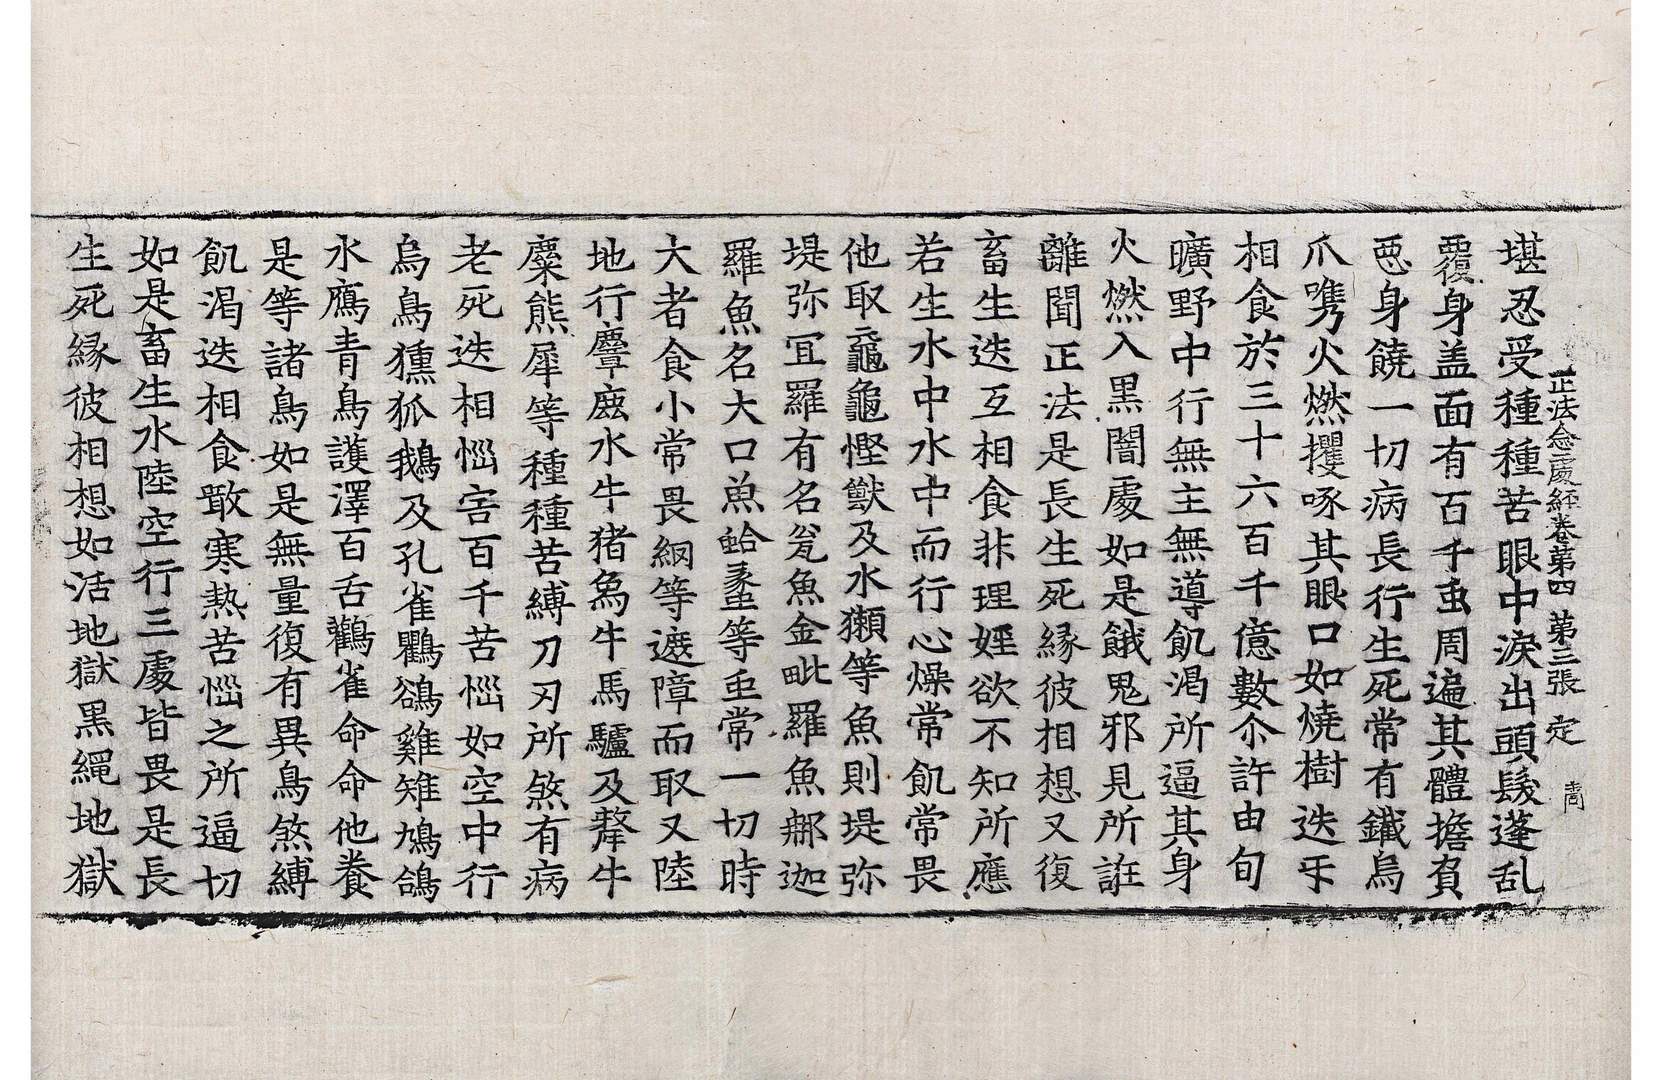 正法念處經卷第四 第三張 定
堪忍受種種苦眼中淚出頭髮蓬乱
覆身盖面有百千虫周遍其體擔負
惡身饒一切病長行生死常有鐵烏
爪㩦火燃攫啄其眼口如燒樹迭乎
相食於三十六百千億數尒許由旬
曠野中行無主無導飢渴所逼其身
火燃入黑闇處如是餓鬼邪見所誑
離聞正法是長生死緣彼相想又復
畜生迭互相食非理婬欲不知所應
若生水中水中而行心燥常飢常畏
他取黿龜慳獸及水獺等魚則堤弥
堤弥冝羅有名㼜魚金毗羅魚郍迦
羅魚名大口魚蛤蟸等虫常一切時
大者食小常畏網等遮障而取又陸
地行麞鹿水牛猪象牛馬驢及犛牛
麋熊犀等種種苦縛刀刃所煞有病
老死迭相惱害百千苦惱如空中行
烏鳥獯狐鵝及孔雀鸜鵒雞雉鳩鴿
水鴈青鳥護澤百舌鸛雀命命他養
是等諸鳥如是無量復有異鳥煞縛
飢渴迭相食噉寒熱苦惱之所逼切
如是畜生水陸空行三處皆畏是長
生死緣彼相想如活地獄黑繩地獄